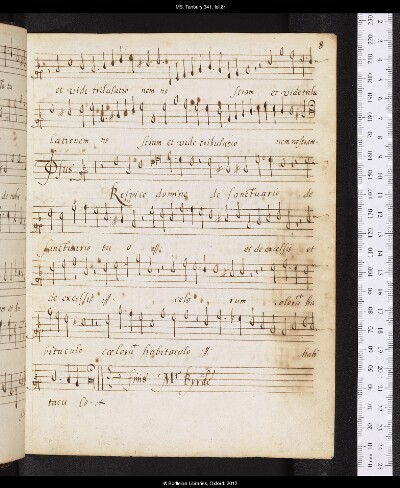 MS. Tenbury 341, fol.8r
8
et vide tribulatio nem no stram et vide tribu
lationem no stram et vide tribulatio nem nostram
Respice domine de sanctuario de
sanctuario tu o et de excelsis et
de excelsis celo rum celoru ha
bitaculo cœloru habitaculo habi
tacu lo
finis Mr Byrde
© Bodleian Libraries, Oxford, 2012